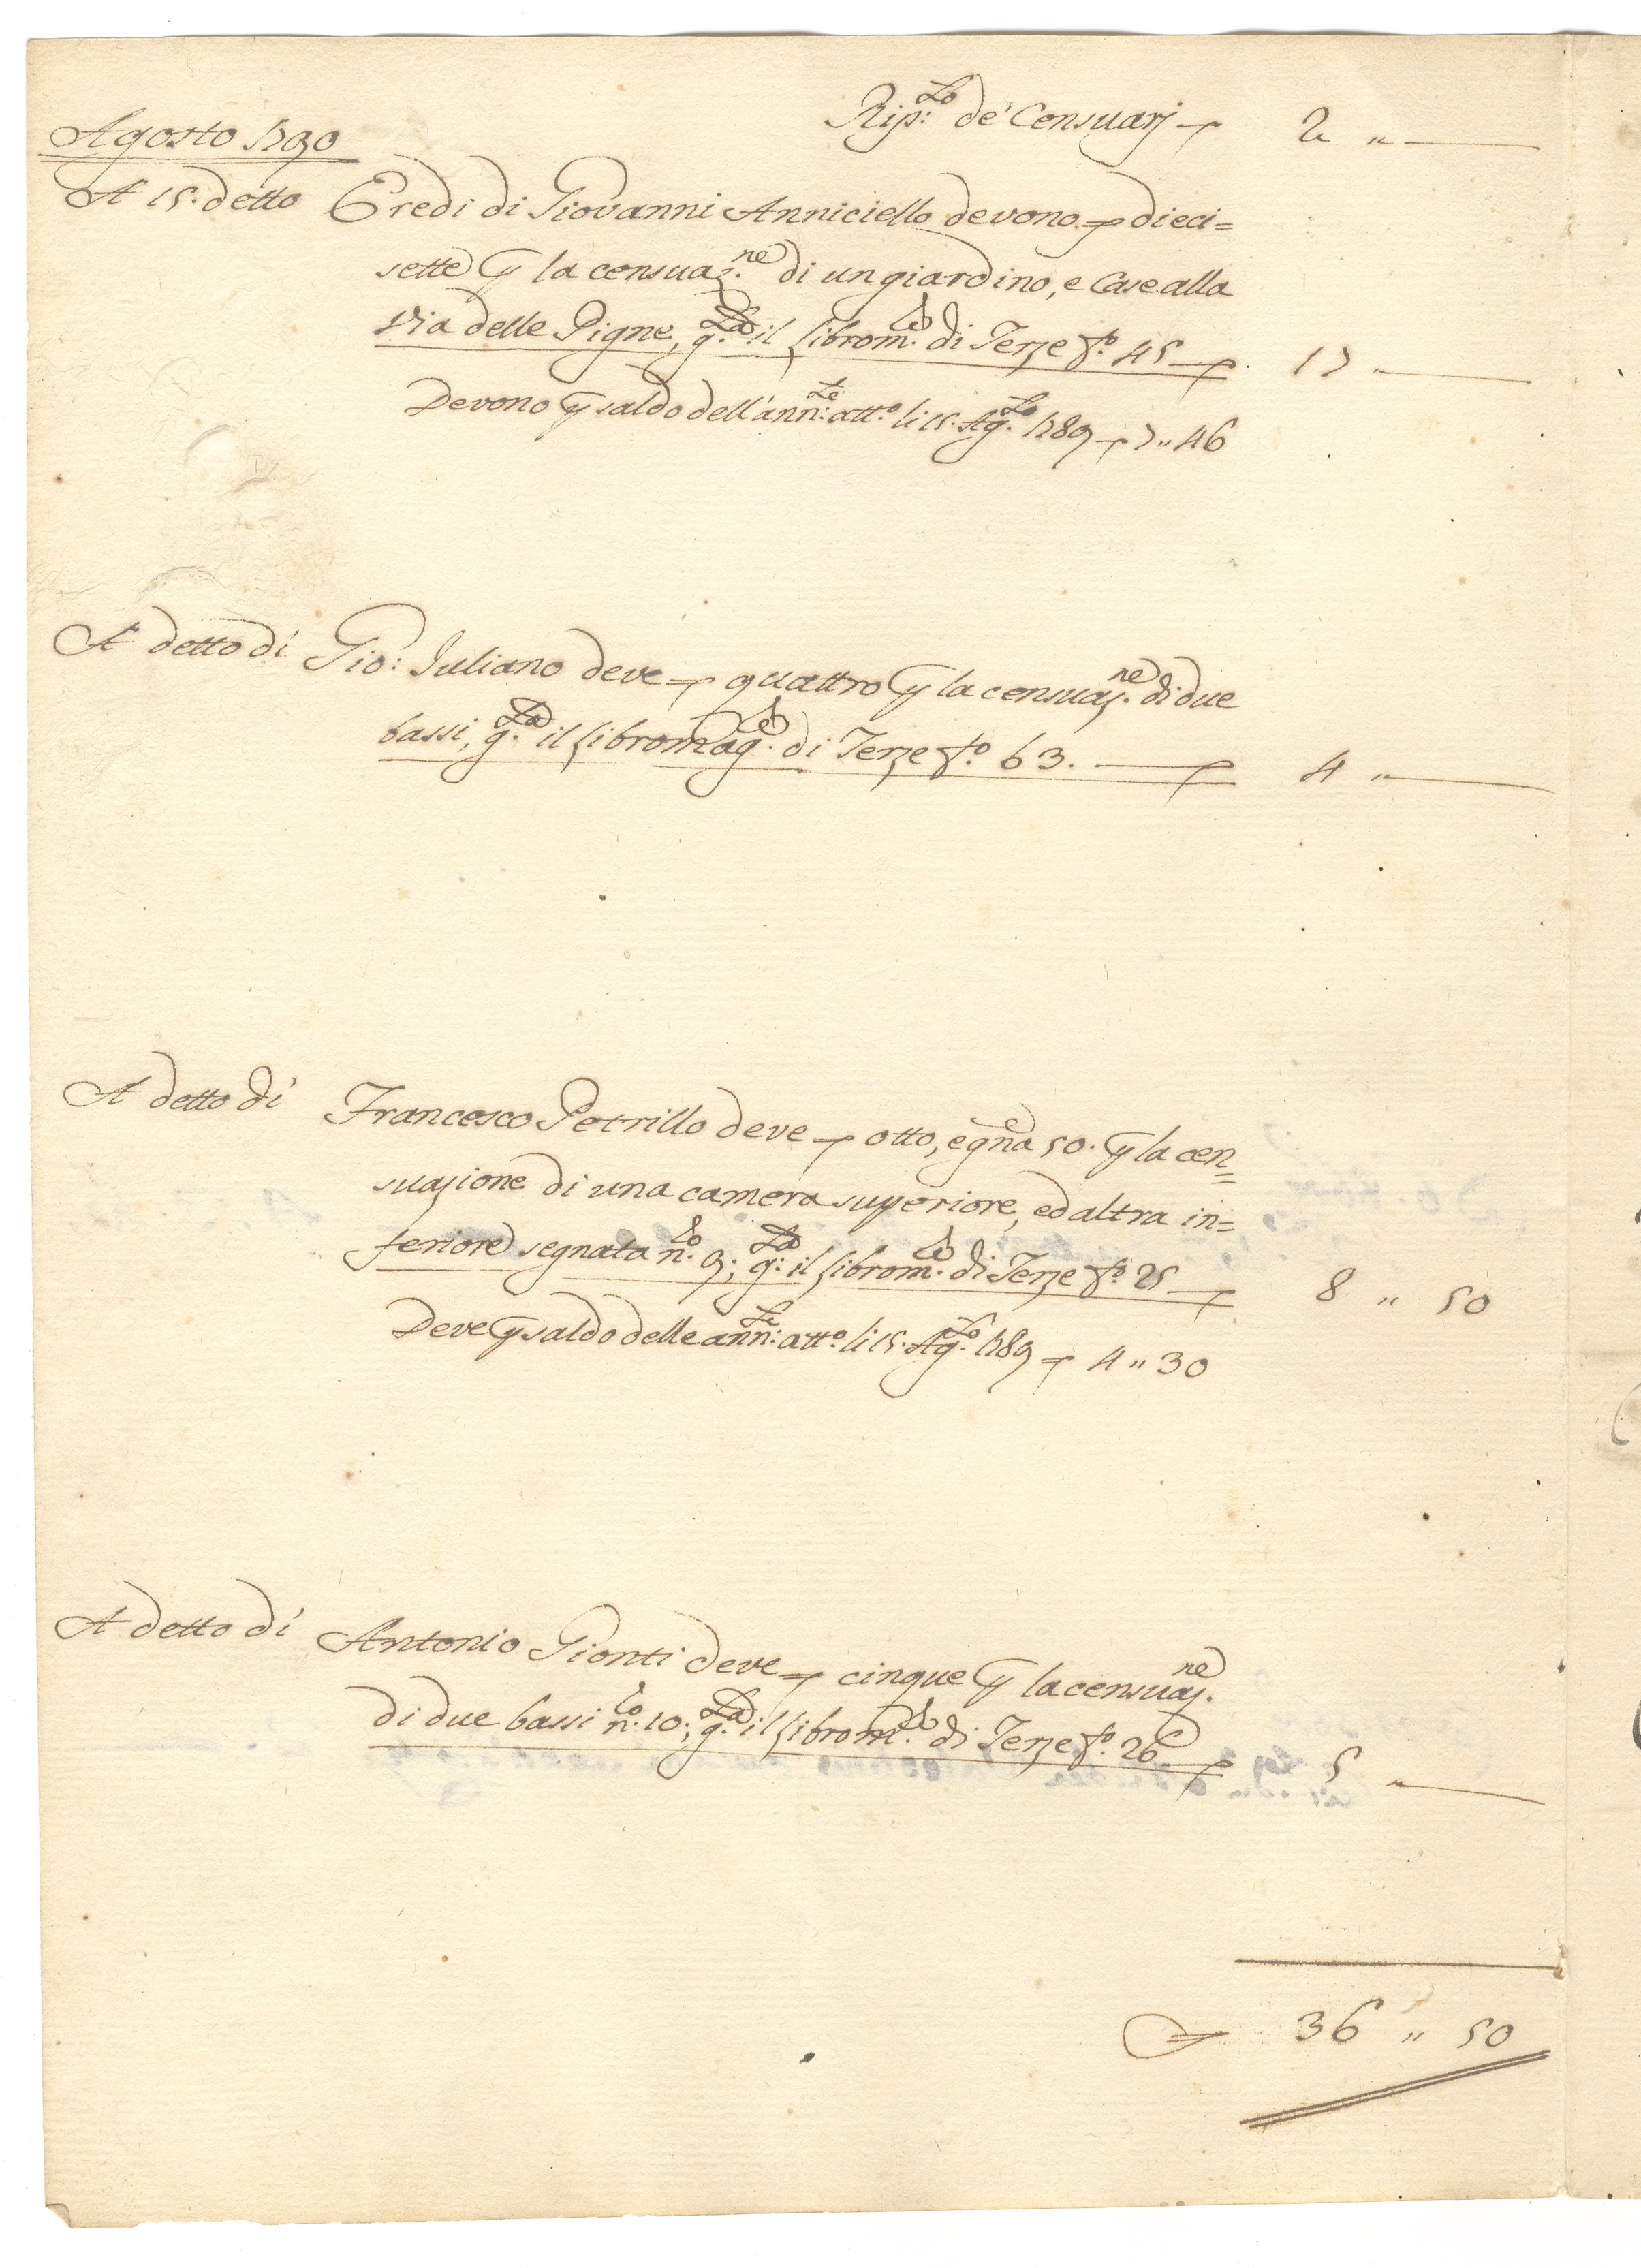 Rip:to de' Censuarj 2 „ —
Agosto 1790
A 15. detto Eredi di Giovanni Anniciello devono dieci=
sette p la censuaz.ne di un giardino, e Case alla
via delle Pigne, q.ta il libro m.e di Terze fo. 45 — 17 „ —
Devono p saldo dell'ann:te att.o li 15. Ag.to 1789 7 „ 46
A detto dì Gio: Iuliano deve quattro p la censuaz.ne di due
bassi, q.ta il libro mag.e di Terze fo. 63. — 4 „ —
A detto dì Francesco Petrillo deve otto, e gna 50. p la cen=
suazione di una camera superiore, ed altra in=
feriore segnata n.ro 9; q.ta il libro m.e di Terze fo. 25 — 8 „ 50
Deve p saldo delle ann:te att.o li 15. Ag.to 1789 4 „ 30
A detto dì Antonio Gionti deve cinque p la censuaz.ne
di due bassi n.ro 10; q.ta il libro m.e di Terze fo. 26 — 5 „ —
36 „ 50